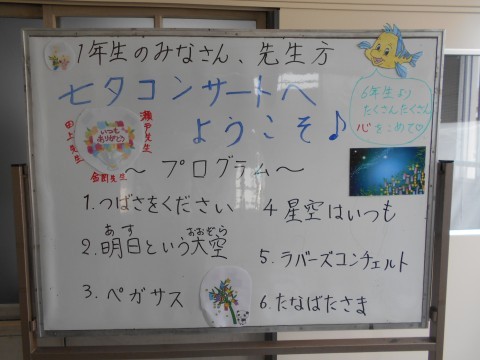 1年生のみなさん、先生方
七夕コンサートへ
ようこそ♪
6年生より
たくさんたくさん
心をこめて♡
瀬戸先生
田上先生
金岡先生
いつも
ありがとう
～プログラム～
1.つばさをください
2.明日という大空
あす
おおぞら
3.ペガサス
4 星空はいつも
5.ラバーズコンチェルト
6.たなばたさま